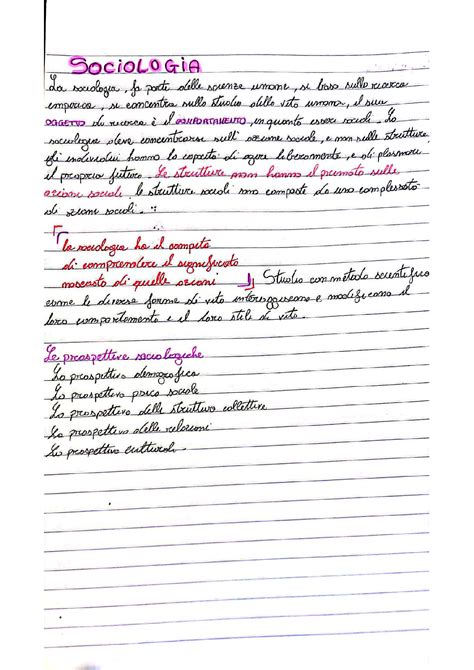 SOCIOLOGIA
La sociologia, fa parte delle scienze umane, si basa sulla ricerca
empirica, si concentra sullo studio della vita umana, il suo
OGGETTO di ricerca è il COMPORTAMENTO, in quanto esseri sociali. La
sociologia deve concentrarse sull' azione sociale, e non sulle strutture
gli individui hanno la capacità di agire liberamente, e di plasmare
il proprio futuro. Le strutture non hanno il primato sulle
azioni sociali, le strutture sociali sono composte da una complessità
di azioni sociali.
la sociologia ha il compito
di comprendere il significato
nascosto di quelle azioni
Studia con metodo scientifico
come le diverse forme di vita interagiscono e modificano il
loro comportamento e il loro stili di vita
Le prospettive sociologiche
La prospettiva demografica
La prospettiva psico sociale
La prospettiva delle strutture collettive
La prospettiva delle relazioni
La prospettiva culturale